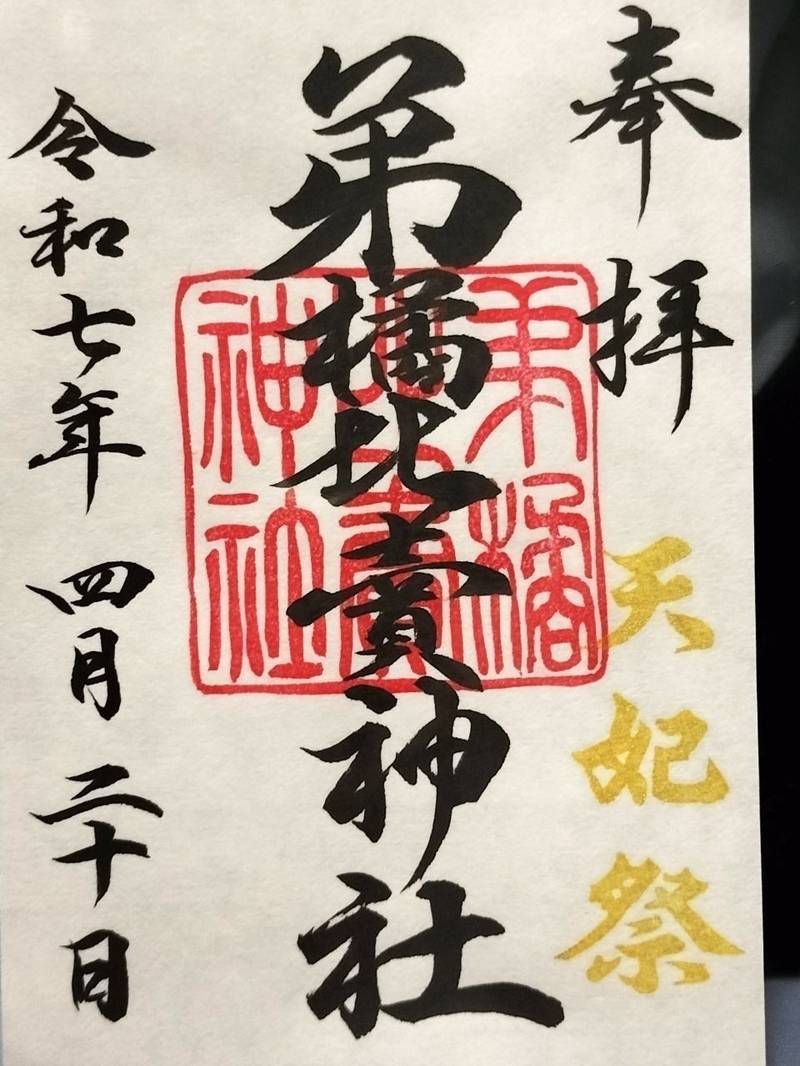 奉拝
天妃祭
弟橘比賣神社
弟橘
比賣
神社
令和七年 四月 二十日